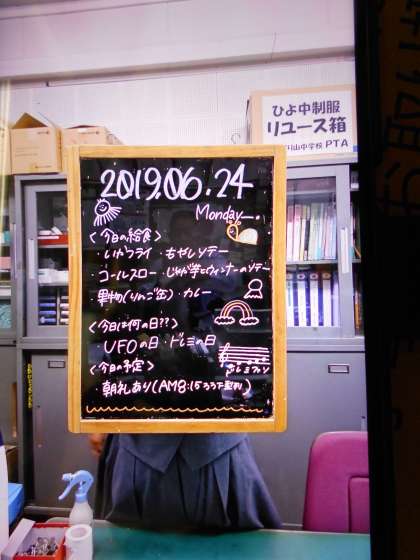 ひよ中制服
リユース箱
山中学校 PTA
2019.06.24
Monday
<今日の給食>
・いやフライ・もやしソテー
・コールスロー・じゃが芋とウィンナーのソテー
・果物(りんご缶)・カレー
<今日は何の日??>
UFOの日・ドレミの日
<今日の予定>
朝礼あり(AM8:15